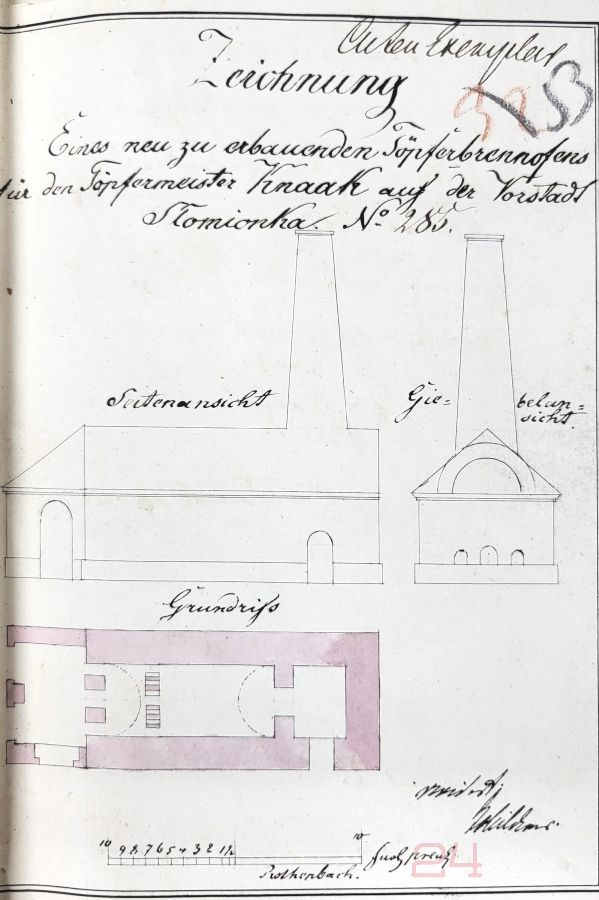 Akten Exemplar
Zeichnung
Eines neu zu erbauenden Töpferbrennofens
für den Töpfermeister Knaak auf der Vorstadt
Slomionka. No 285.
Seitenansicht
Gie=
belan=
sicht.
Grundriss
revidirt
10 9 8 7 6 5 4 3 2 1½
10
Fuß preuß.
Rothenbach.
24